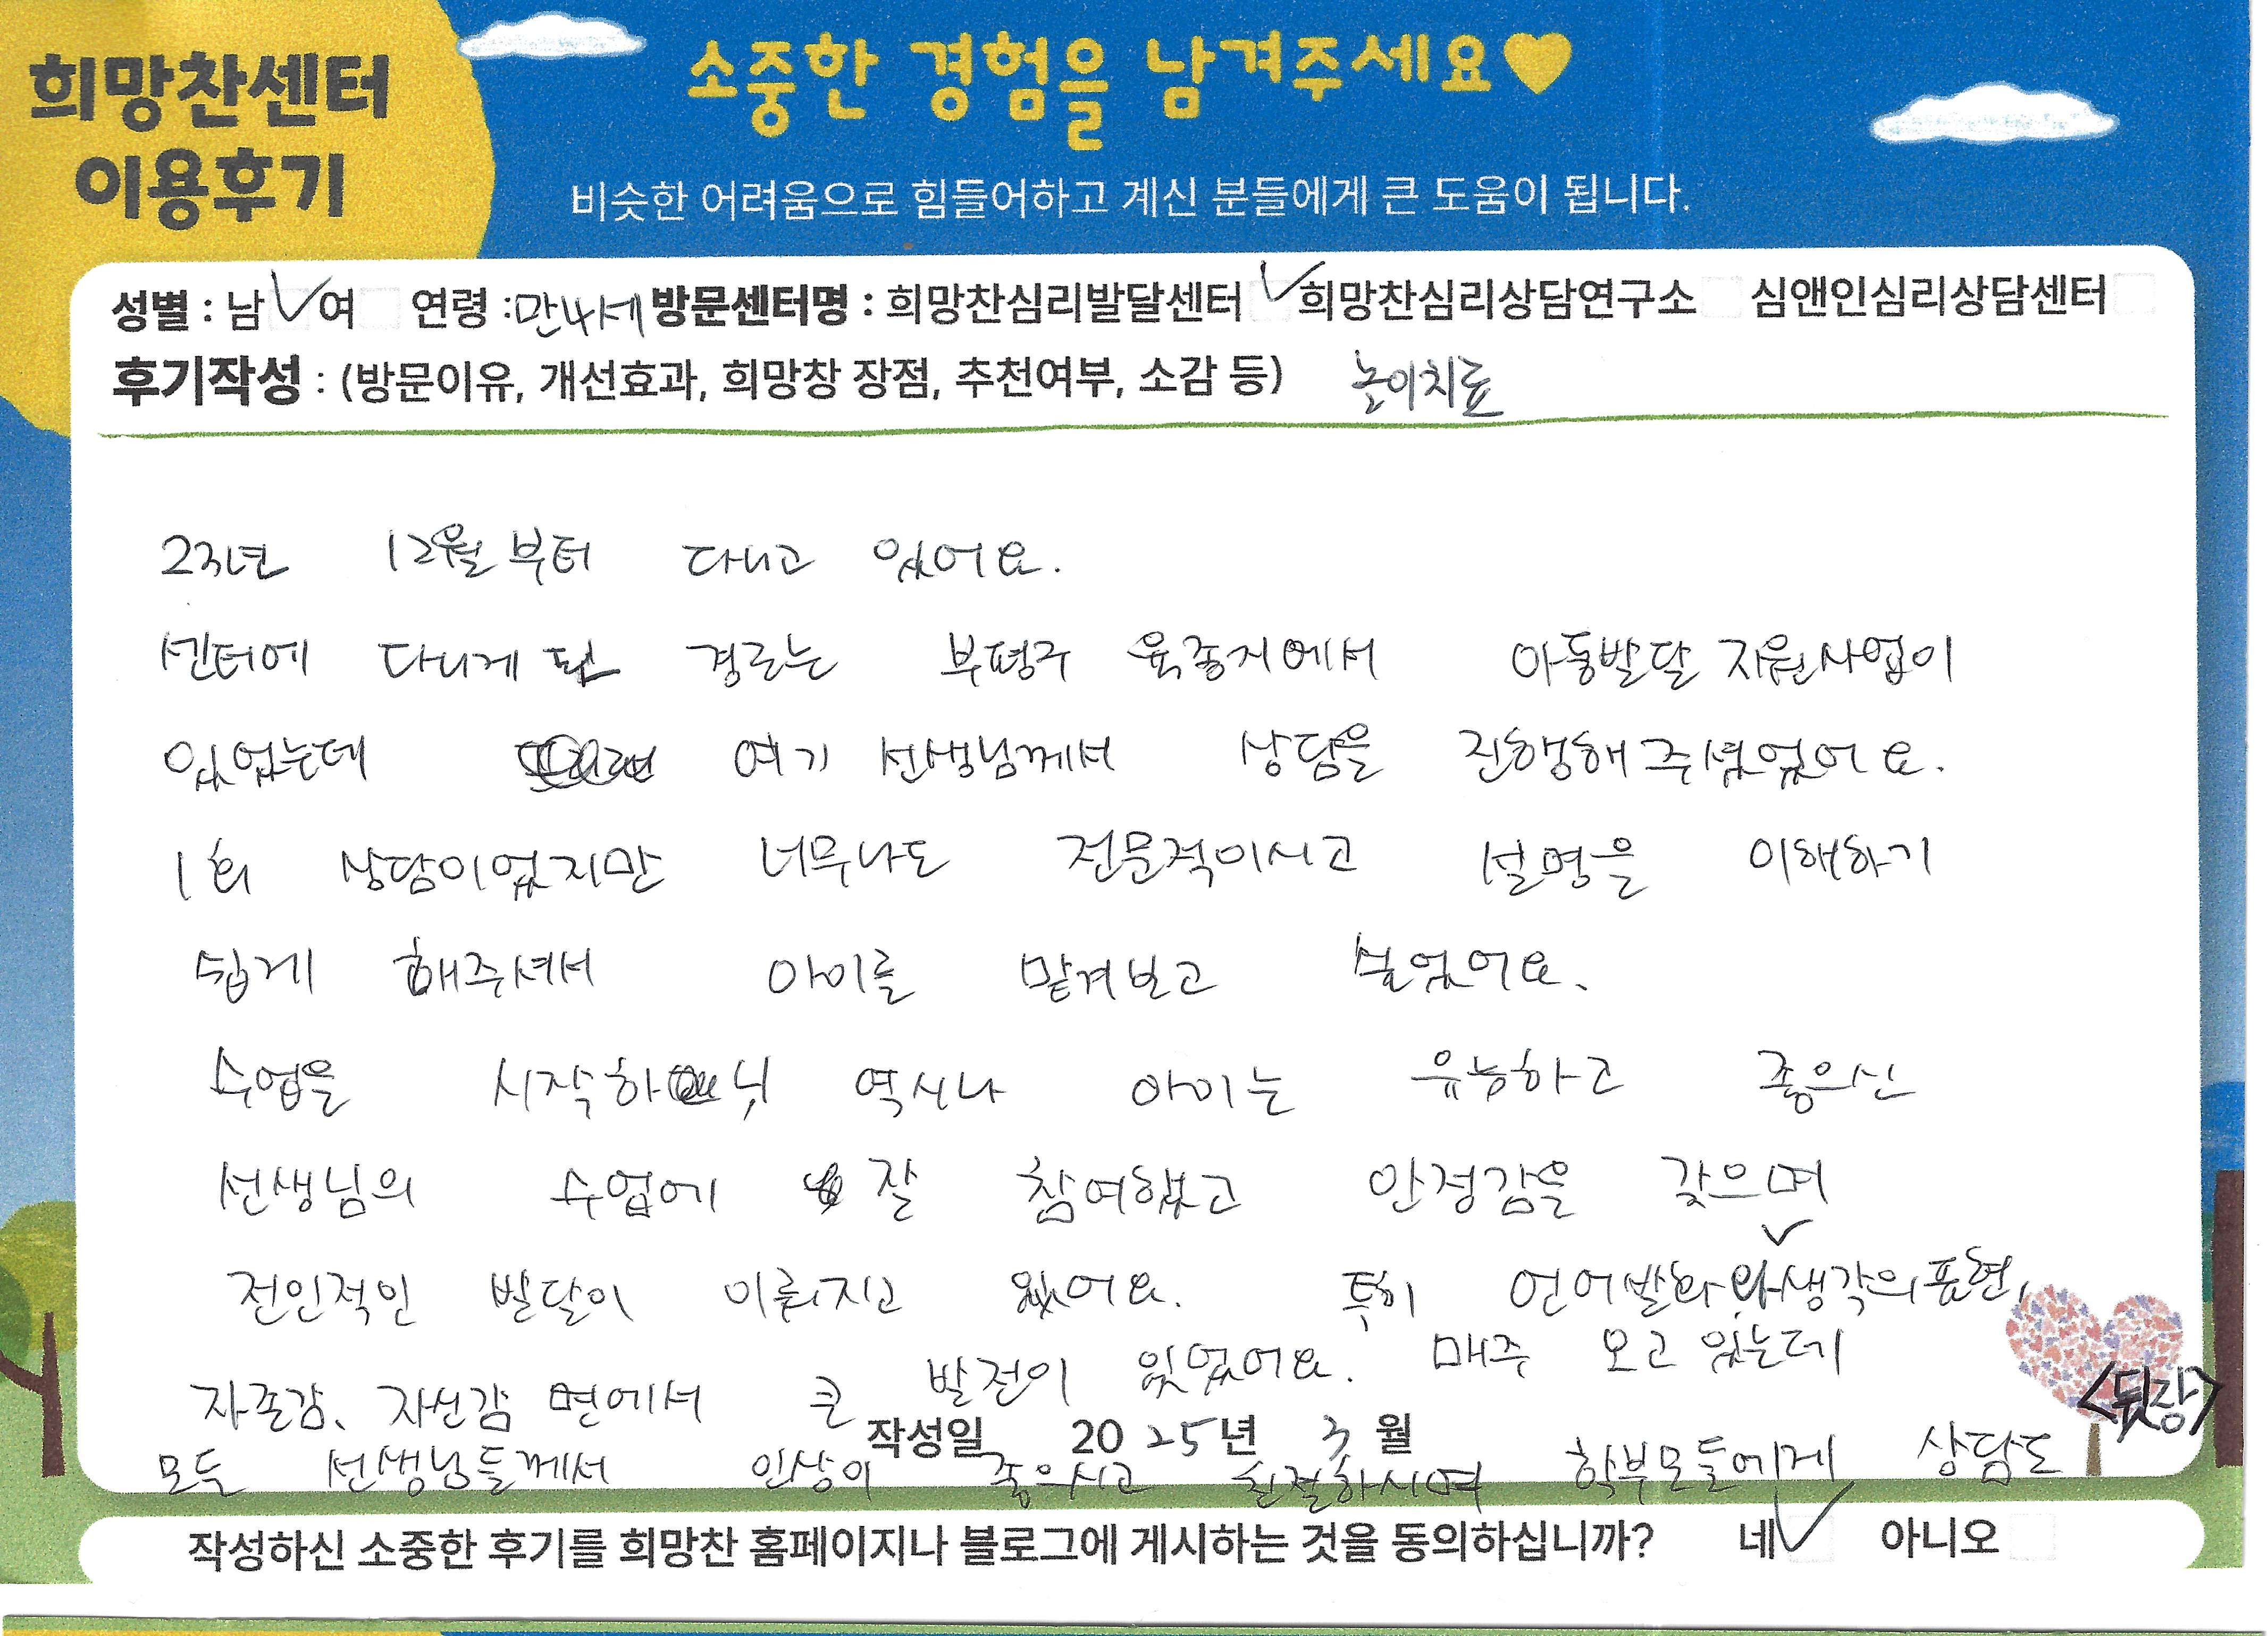 희망찬센터
이용후기
소중한 경험을 남겨주세요♥
비슷한 어려움으로 힘들어하고 계신 분들에게 큰 도움이 됩니다.
성별 : 남 ✓ 여 연령 : 만4세 방문센터명 : 희망찬심리발달센터 ✓ 희망찬심리상담연구소 심앤인심리상담센터
후기작성 : (방문이유, 개선효과, 희망창 장점, 추천여부, 소감 등) 놀이치료
23년 12월부터 다니고 있어요.
센터에 다니게 된 경로는 부평구 육종지에서 아동발달 지원사업이
있었는데 여기 선생님께서 상담을 진행해주셨었어요.
1회 상담이었지만 너무나도 전문적이시고 설명을 이해하기
쉽게 해주셔서 아이를 맡겨보고 싶었어요.
수업을 시작하니 역시나 아이는 유능하고 좋으신
선생님의 수업에 잘 참여했고 안정감을 갖으며
전인적인 발달이 이뤄지고 왔어요. 특히 언어발화와 생각의 표현,
자존감, 자신감 면에서 큰 발전이 있었어요. 매주 오고 있는데
<뒷장>
작성일 2025년 3월
모든 선생님들께서 인상이 좋으시고 친절하시며 학부모들에게 상담도
작성하신 소중한 후기를 희망찬 홈페이지나 블로그에 게시하는 것을 동의하십니까? 네 ✓ 아니오